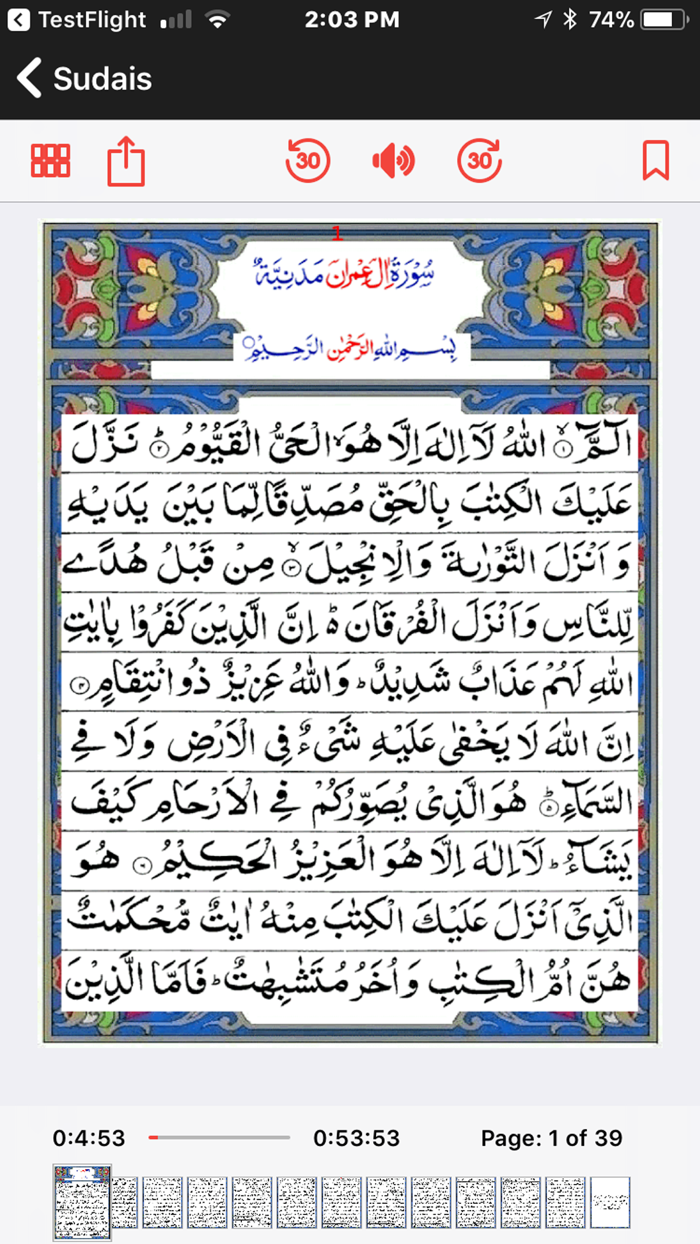 TestFlight 2:03 PM 74%
Sudais
30 30
1
سُوْرَةُ اٰلِ عِمْرٰنَ مَدَنِيَّةٌ
بِسْمِ اللّٰهِ الرَّحْمٰنِ الرَّحِيْمِ
الٓمَّٓ ۙ﴿۱﴾ اللّٰهُ لَاۤ اِلٰهَ اِلَّا هُوَ ۙ الْحَیُّ الْقَیُّوْمُ ؕ﴿۲﴾ نَزَّلَ
عَلَیْكَ الْكِتٰبَ بِالْحَقِّ مُصَدِّقًا لِّمَا بَیْنَ یَدَیْهِ
وَ اَنْزَلَ التَّوْرٰىةَ وَالْاِنْجِیْلَ ۙ﴿۳﴾ مِنْ قَبْلُ هُدًے
لِّلنَّاسِ وَاَنْزَلَ الْفُرْقَانَ ؕ۬ اِنَّ الَّذِیْنَ كَفَرُوْا بِاٰیٰتِ
اللّٰهِ لَهُمْ عَذَابٌ شَدِیْدٌ ؕ وَاللّٰهُ عَزِیْزٌ ذُو انْتِقَامٍ ﴿۴﴾
اِنَّ اللّٰهَ لَا یَخْفٰی عَلَیْهِ شَیْءٌ فِی الْاَرْضِ وَلَا فِے
السَّمَآءِ ؕ﴿۵﴾ هُوَ الَّذِیْ یُصَوِّرُكُمْ فِے الْاَرْحَامِ كَیْفَ
یَشَآءُ ؕ لَاۤ اِلٰهَ اِلَّا هُوَ الْعَزِیْزُ الْحَكِیْمُ ﴿۶﴾ هُوَ
الَّذِیْۤ اَنْزَلَ عَلَیْكَ الْكِتٰبَ مِنْهُ اٰیٰتٌ مُّحْكَمٰتٌ
هُنَّ اُمُّ الْكِتٰبِ وَاُخَرُ مُتَشٰبِهٰتٌ ؕ فَاَمَّا الَّذِیْنَ
0:4:53 0:53:53 Page: 1 of 39